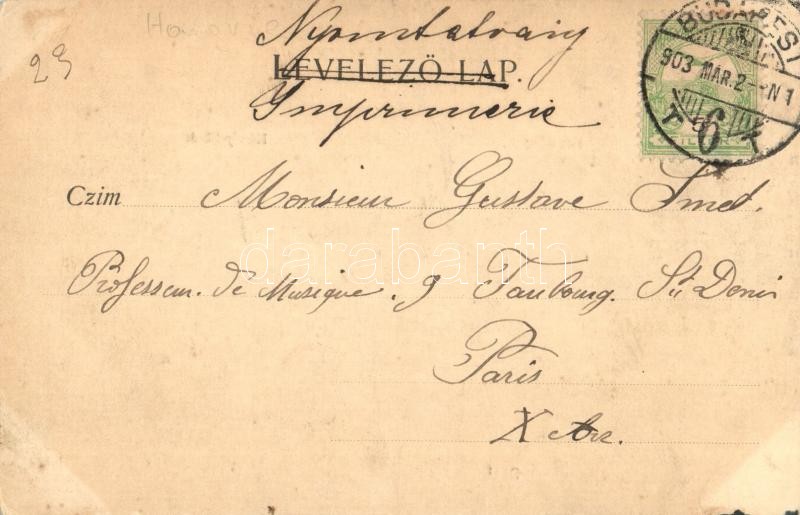 Nyomtatvány
LEVELEZŐ LAP.
Imprimerie
BUDAPEST
903 MÁR. 2 N 1
6
T T
23
Czim
Monsieur Gustave Smet.
Professeur. de Musique. 9 Faubourg. St Denis
Paris
X Arr.
darabanth